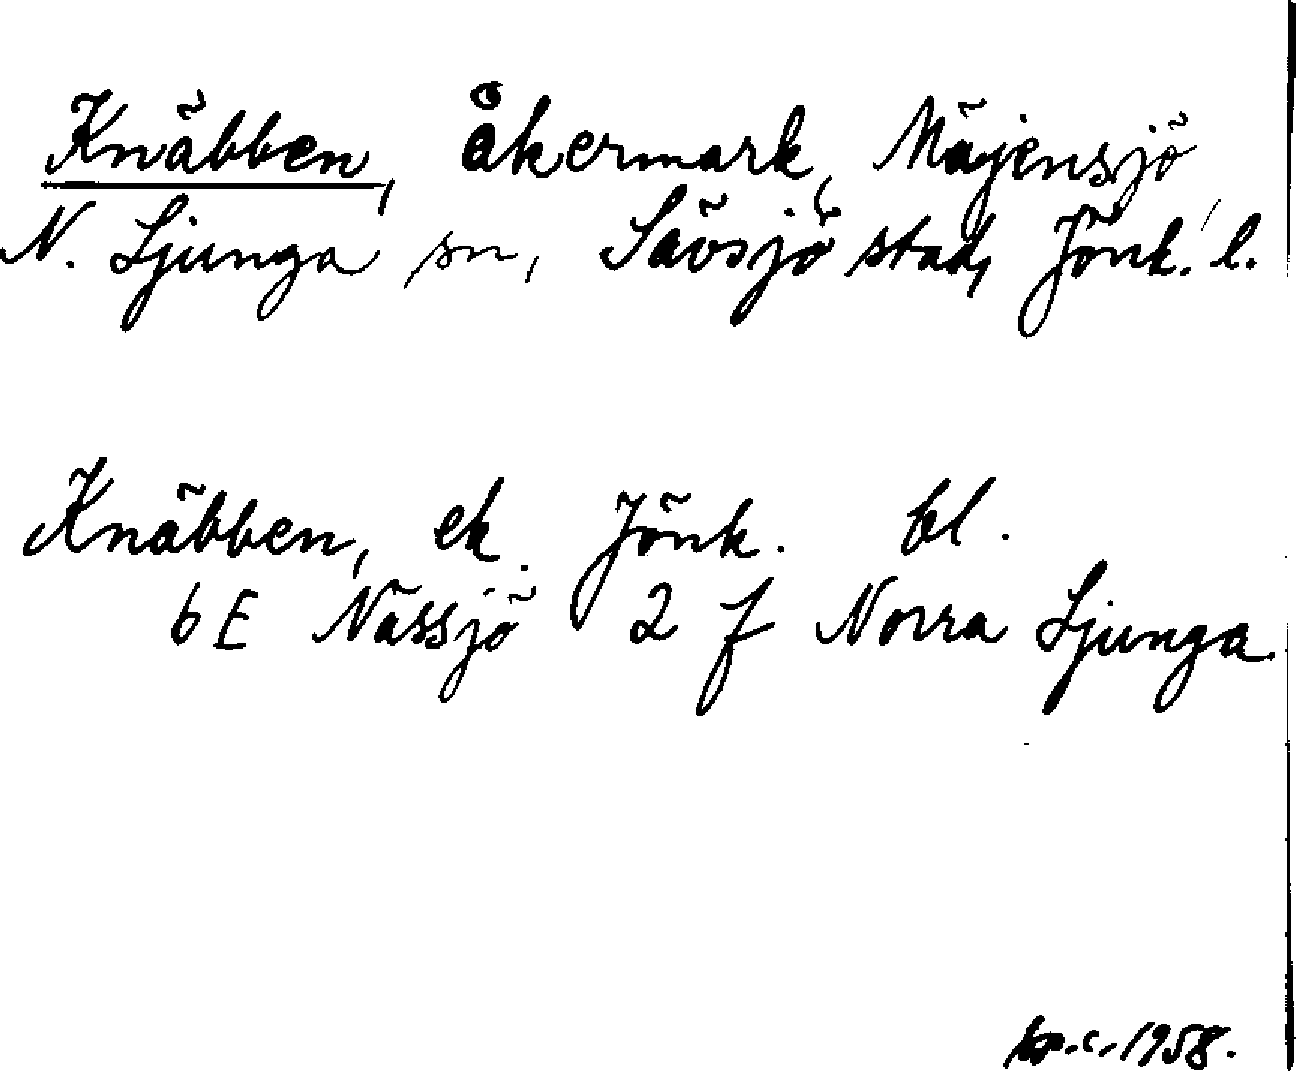 Knäbben, åkermark, Mäjensjö
N. Ljunga sn, Sävsjö stad, Jönk. l.
Knäbben, ek. Jönk. bl.
6 E Nässjö 2 f Norra Ljunga.
1958.